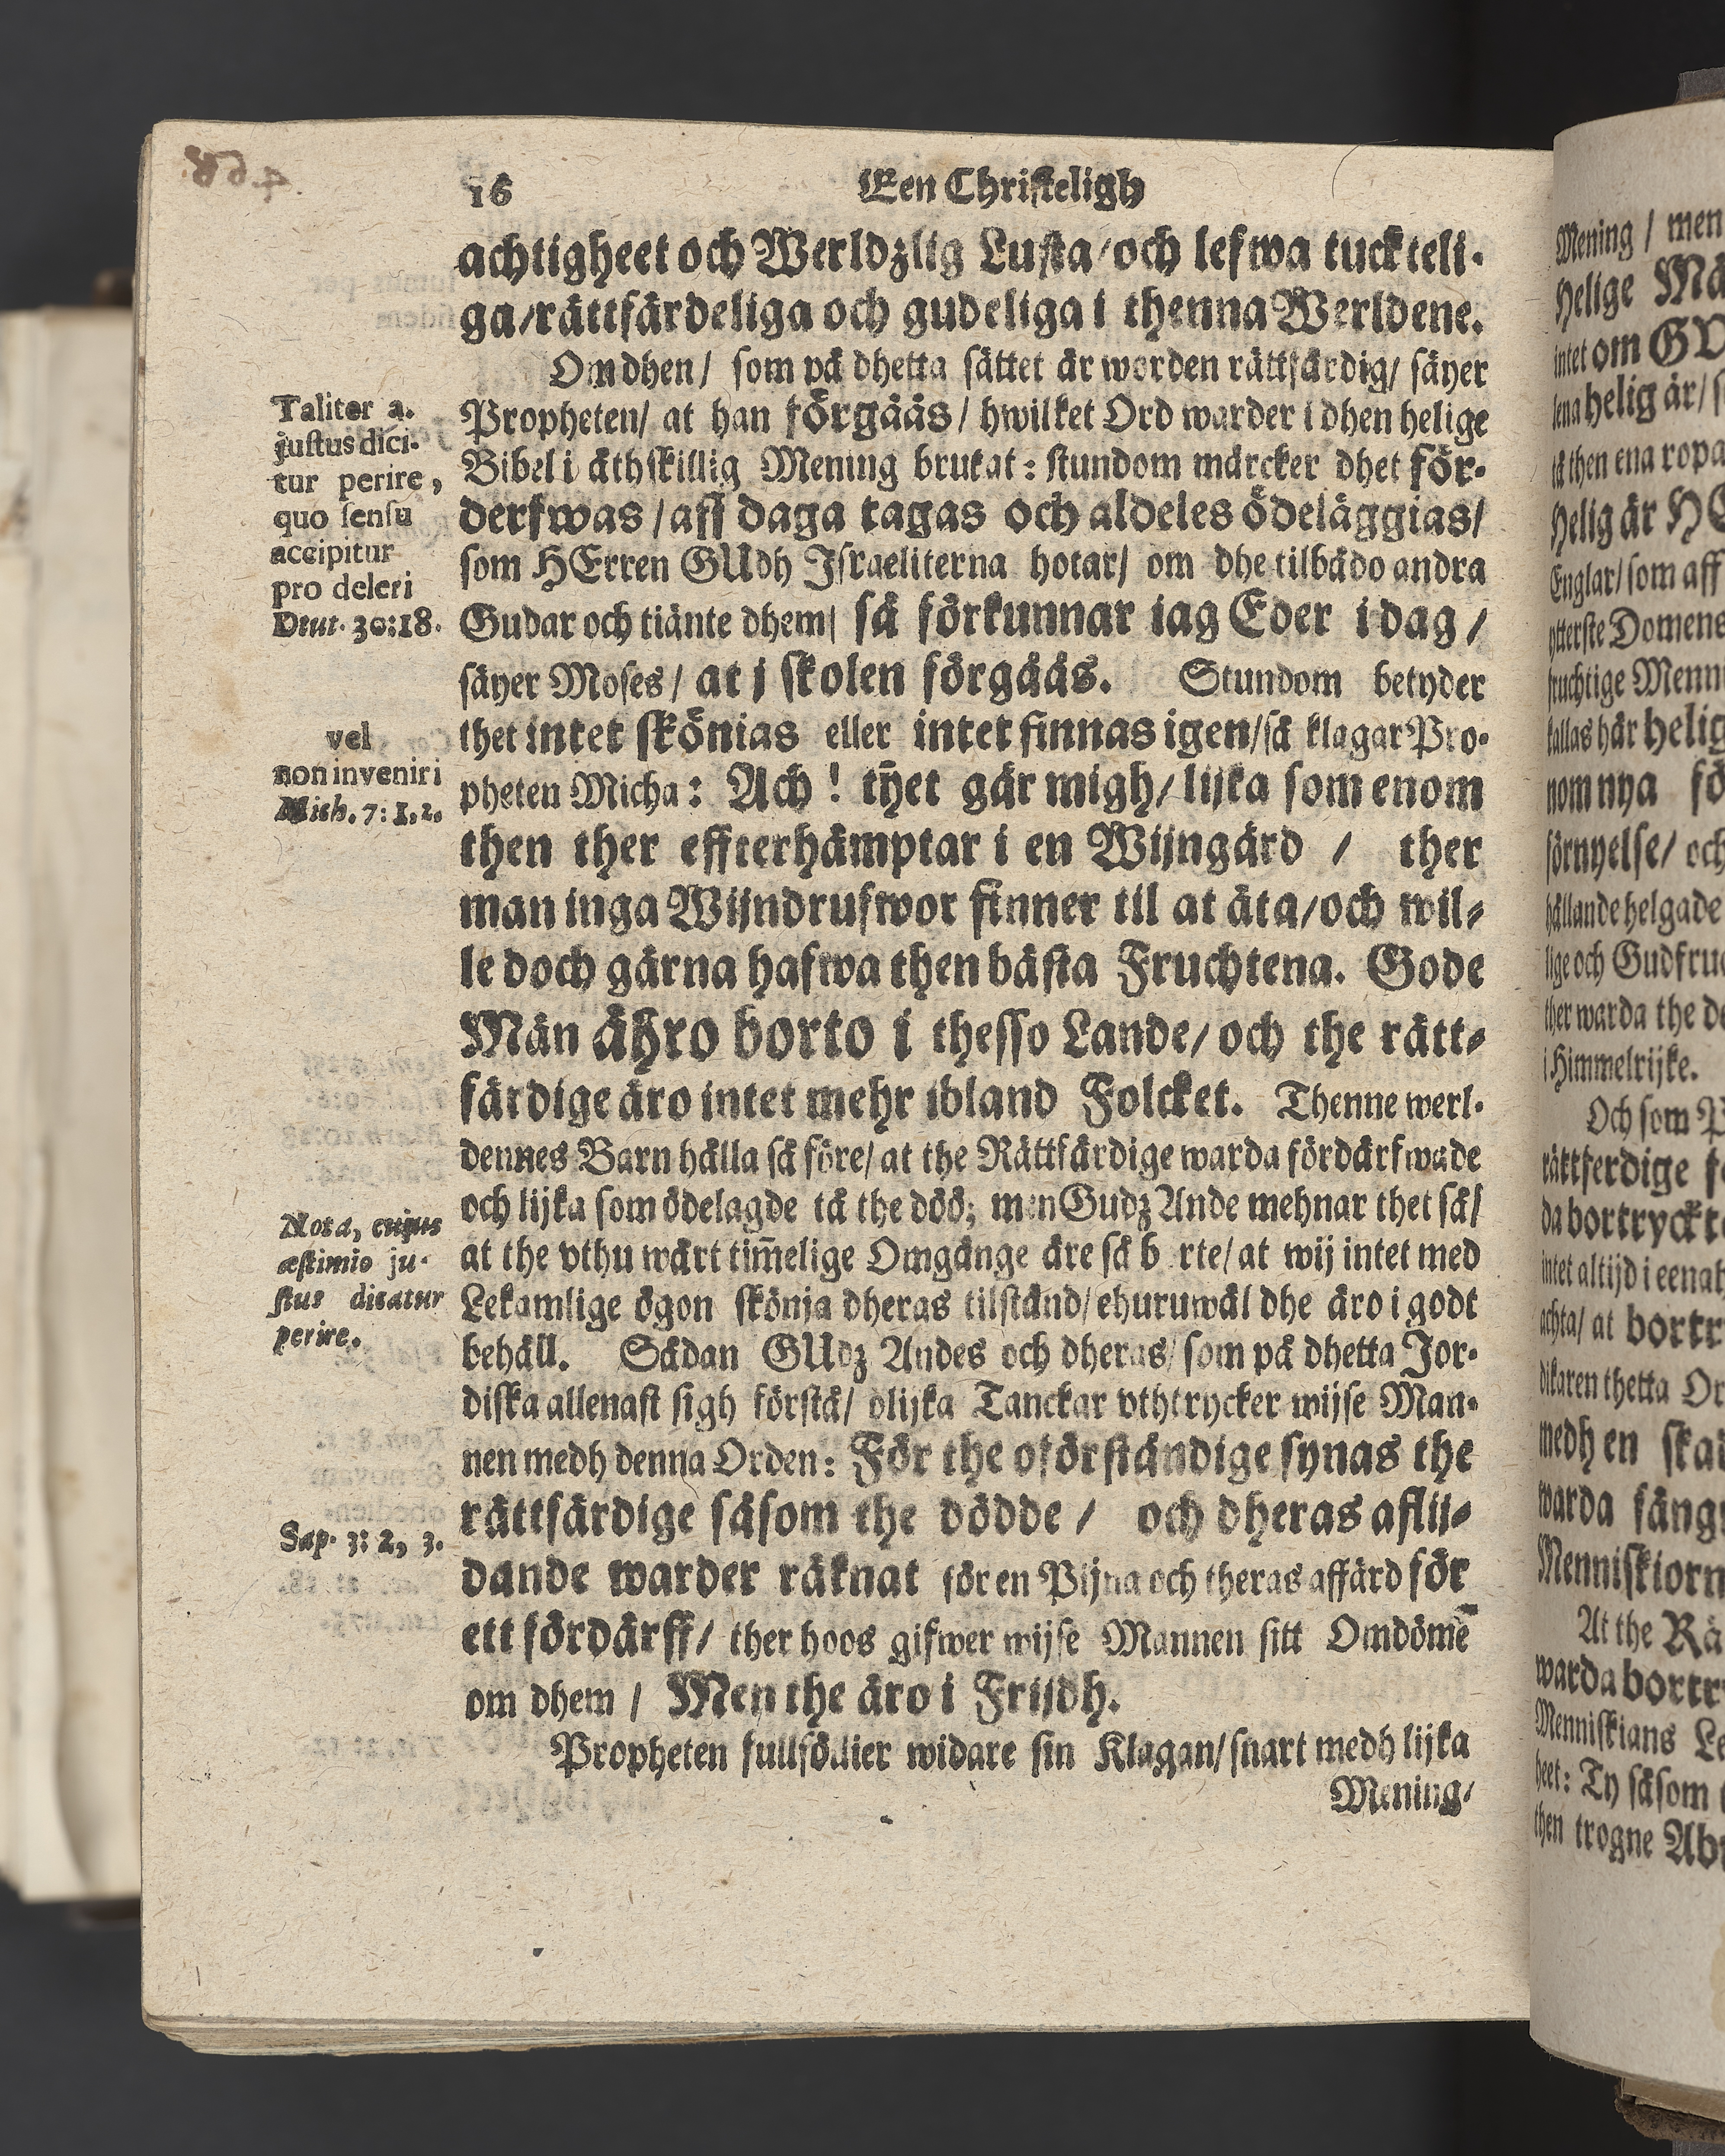 16 Een Christeligh
achtigheet och Werldzlig Lusta/och lefwa tuckteli-
ga/rättfärdeliga och gudeliga i thenna Werldene.
Om dhen/ som på dhetta sättet är worden rättfärdig/ säyer
Propheten/ at han förgåås/ hwilket Ord warder i dhen helige
Bibel i åthskillig Mening brukat: stundom märcker dhet för-
derfwas/aff daga tagas och aldeles ödeläggias/
som HErren GUdh Israeliterna hotar/ om dhe tilbådo andra
Gudar och tiänte dhem/ så förkunnar iag Eder i dag/
säyer Moses/ at i skolen förgåås. Stundom betyder
thet intet skönias eller intet finnas igen/så klagar Pro-
pheten Micha: Ach! thet går migh/lijka som enom
then ther effterhämptar i en Wijngård / ther
man inga Wijndrufwor finner til at äta/och wil-
le doch gärna hafwa then bästa Fruchtena. Gode
Män ähro borto i thesso Lande/och the rätt-
färdige äro intet mehr ibland Folcket. Thenne werl-
dennes Barn hålla så före/at the Rättfärdige warda fördärfwade
och lijka som ödelagde tå the döö; men Gudz Ande mehnar thet så/
at the vthu wårt tim̄elige Omgänge äre så b rte/at wij intet med
Lekamlige ögon skönja dheras tilstånd/ehuruwäl dhe äro i godt
behåll. Sådan GUdz Andes och dheras/som på dhetta Jor-
diska allenast sigh förstå/ olijka Tanckar vthtrycker wijse Man-
nen medh denna Orden: För the oförståndige synas the
rättfärdige såsom the dödde/ och dheras aflij-
dande warder räknat för en Pijna och theras affärd för
ett fördärff/ ther hoos gifwer wijse Mannen sitt Omdömē
om dhem/ Men the äro i Frijdh.
Propheten fullföllier widare sin Klagan/snart medh lijka
Mening/
Taliter a.
justus dici-
tur perire,
quo sensu
accipitur
pro deleri
Deut. 30:18.
vel
non inveniri
Mich. 7: 1, 2.
Nota, cujus
æstimio ju-
stus dicatur
perire.
Sap. 3: 2, 3.
Mening/ men
Helige
intet om
lena helig är/
tå then ena ropa
Helig är
Englar/som aff
ytterste Domens
fruchtige
kallas här helig
nom nya
förnyelse/ och
hållande helgade
lige och
ther warda the
i Himmelrijke.
Och som
rättferdige
da bortryckt
intet altijd i
achta/ at
dikaren thetta
medh en
warda
At the
warda
heet: Ty såsom
then trogne